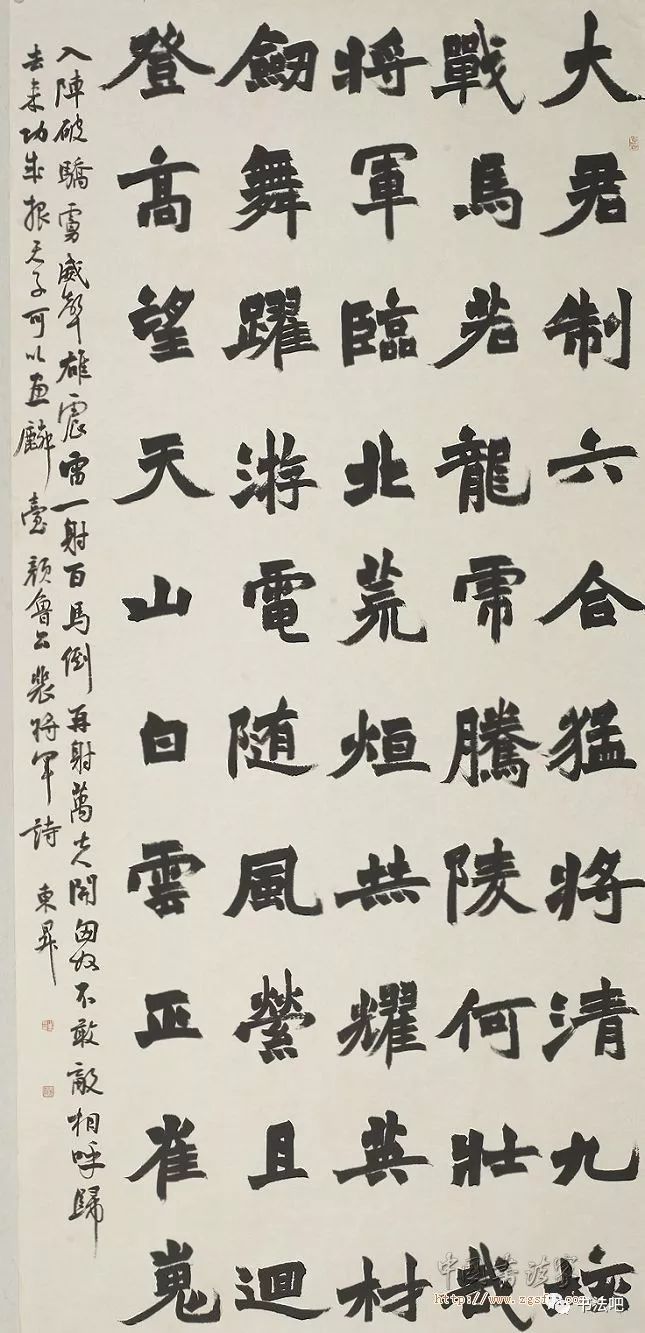 大君制六合猛将清九垓
戰馬若龍虎騰陵何壯哉
将軍臨北荒烜赫耀英材
劒舞躍游電随風縈且迴
登高望天山白雲正崔嵬
入陣破驕虜威聲雄震雷一射百馬倒再射萬夫開匈奴不敢敵相呼歸
去来功成報天子可以畫麟臺 顔魯公裴将軍詩 東昇
http://www.zgsf
书法吧